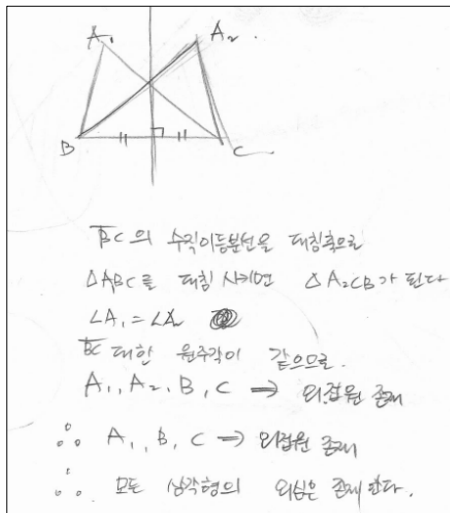 A₁
A₂
B
C
BC의 수직이등분선을 대칭축으로
△ABC를 대칭 시키면 △A₂CB가 된다
∠A₁ = ∠A₂
BC 대한 원주각이 같으므로.
A₁, A₂, B, C ⇒ 외접원 존재
∴ A₁, B, C ⇒ 외접원 존재
∴ 모든 삼각형의 외심은 존재한다.